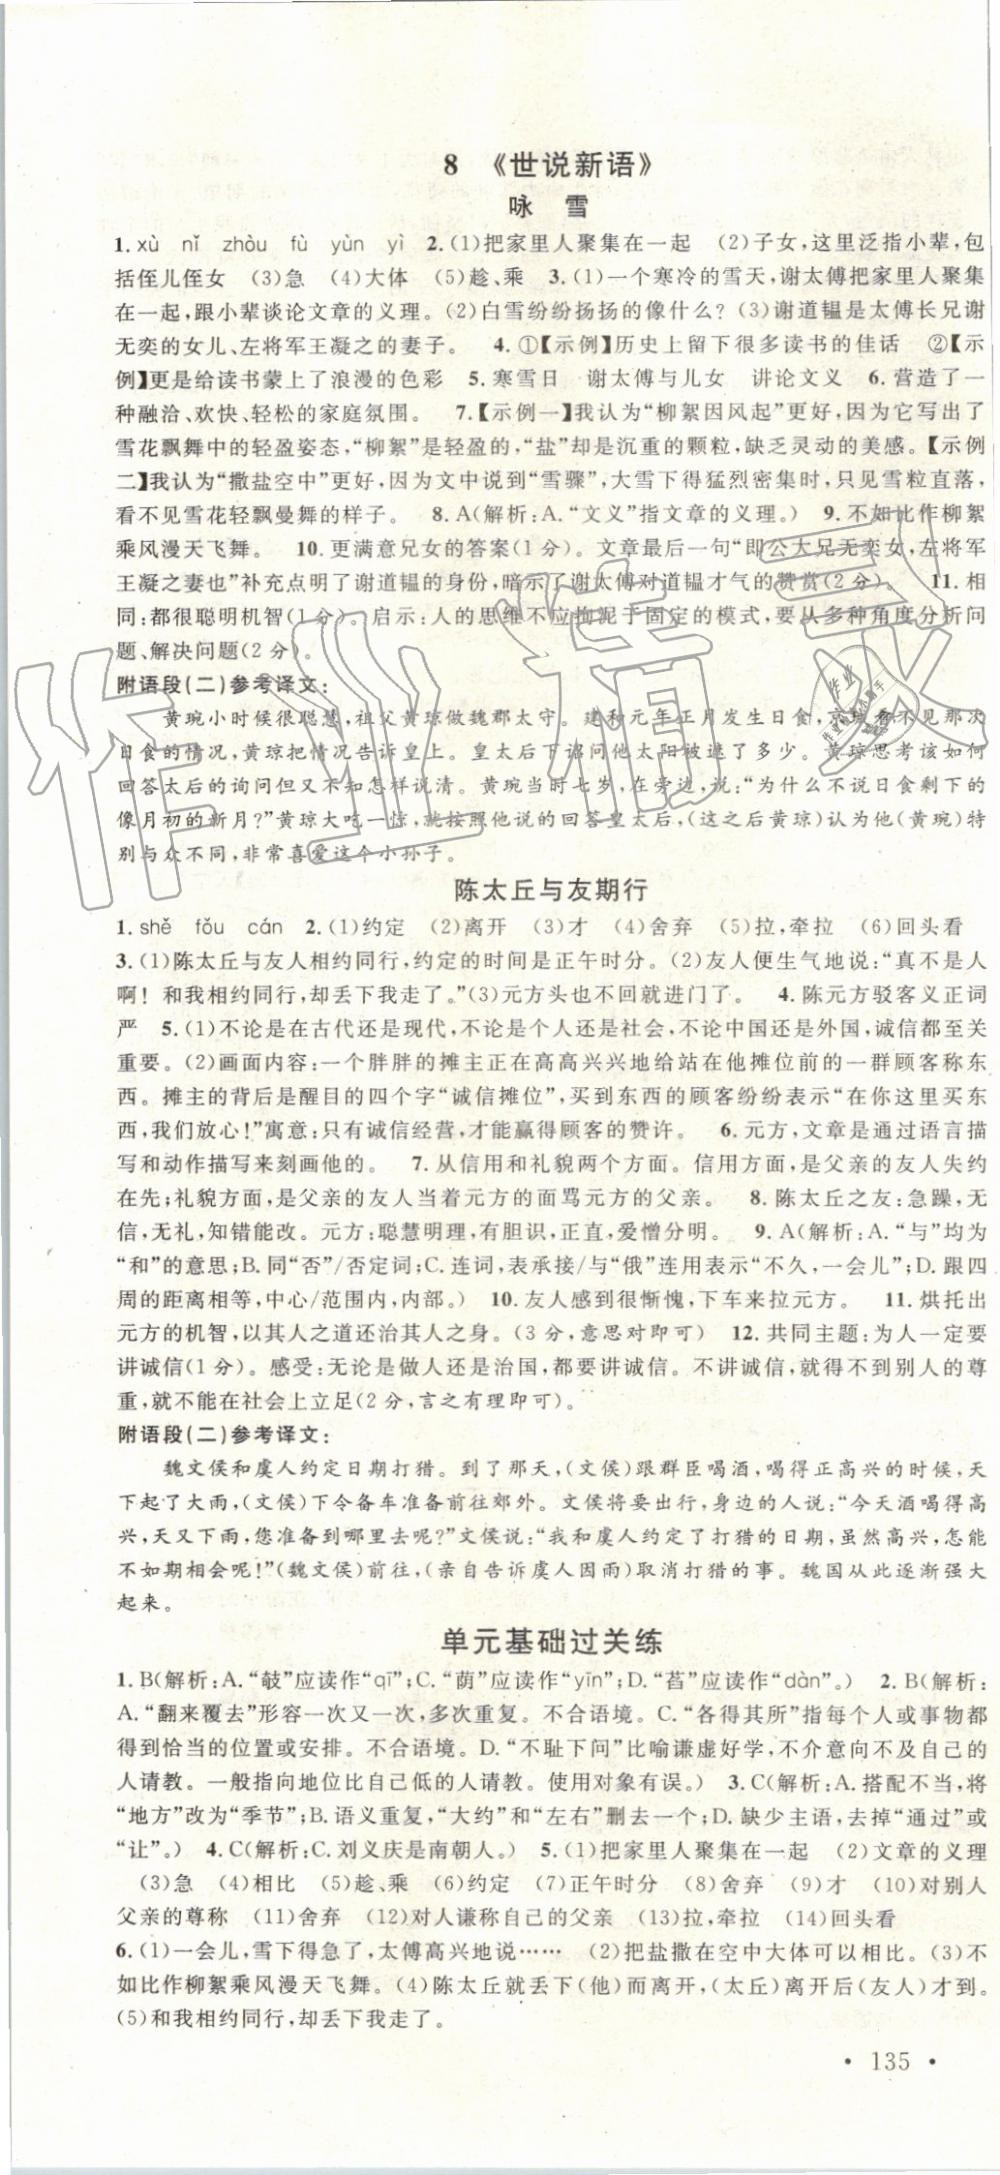 8 《世说新语》
咏 雪
1. xù nǐ zhòu fù yùn yì 2. (1)把家里人聚集在一起 (2)子女,这里泛指小辈,包
括侄儿侄女 (3)急 (4)大体 (5)趁、乘 3. (1)一个寒冷的雪天,谢太傅把家里人聚集
在一起,跟小辈谈论文章的义理。(2)白雪纷纷扬扬的像什么?(3)谢道韫是太傅长兄谢
无奕的女儿、左将军王凝之的妻子。 4. ①【示例】历史上留下很多读书的佳话 ②【示
例】更是给读书蒙上了浪漫的色彩 5. 寒雪日 谢太傅与儿女 讲论文义 6. 营造了一
种融洽、欢快、轻松的家庭氛围。 7.【示例一】我认为“柳絮因风起”更好,因为它写出了
雪花飘舞中的轻盈姿态,“柳絮”是轻盈的,“盐”却是沉重的颗粒,缺乏灵动的美感。【示例
二】我认为“撒盐空中”更好,因为文中说到“雪骤”,大雪下得猛烈密集时,只见雪粒直落,
看不见雪花轻飘曼舞的样子。 8. A(解析:A.“文义”指文章的义理。) 9. 不如比作柳絮
乘风漫天飞舞。 10. 更满意兄女的答案(1 分)。文章最后一句“即公大兄无奕女,左将军
王凝之妻也”补充点明了谢道韫的身份,暗示了谢太傅对道韫才气的赞赏(2 分)。 11. 相
同:都很聪明机智(1 分)。启示:人的思维不应拘泥于固定的模式,要从多种角度分析问
题、解决问题(2 分)。
附语段(二)参考译文:
黄琬小时候很聪慧,祖父黄琼做魏郡太守。建和元年正月发生日食,京城看不见那次
日食的情况,黄琼把情况告诉皇上。皇太后下诏问他太阳被遮了多少。黄琼思考该如何
回答太后的询问但又不知怎样说清。黄琬当时七岁,在旁边,说:“为什么不说日食剩下的
像月初的新月?”黄琼大吃一惊,就按照他说的回答皇太后,(这之后黄琼)认为他(黄琬)特
别与众不同,非常喜爱这个小孙子。
陈太丘与友期行
1. shě fǒu cán 2. (1)约定 (2)离开 (3)才 (4)舍弃 (5)拉,牵拉 (6)回头看
3. (1)陈太丘与友人相约同行,约定的时间是正午时分。(2)友人便生气地说:“真不是人
啊! 和我相约同行,却丢下我走了。”(3)元方头也不回就进门了。 4. 陈元方驳客义正词
严 5. (1)不论是在古代还是现代,不论是个人还是社会,不论中国还是外国,诚信都至关
重要。(2)画面内容:一个胖胖的摊主正在高高兴兴地给站在他摊位前的一群顾客称东
西。摊主的背后是醒目的四个字“诚信摊位”,买到东西的顾客纷纷表示“在你这里买东
西,我们放心!”寓意:只有诚信经营,才能赢得顾客的赞许。 6. 元方,文章是通过语言描
写和动作描写来刻画他的。 7. 从信用和礼貌两个方面。信用方面,是父亲的友人失约
在先;礼貌方面,是父亲的友人当着元方的面骂元方的父亲。 8. 陈太丘之友:急躁,无
信,无礼,知错能改。元方:聪慧明理,有胆识,正直,爱憎分明。 9. A(解析:A.“与”均为
“和”的意思;B. 同“否”/否定词;C. 连词,表承接/与“俄”连用表示“不久,一会儿”;D. 跟四
周的距离相等,中心/范围内,内部。) 10. 友人感到很惭愧,下车来拉元方。 11. 烘托出
元方的机智,以其人之道还治其人之身。(3 分,意思对即可) 12. 共同主题:为人一定要
讲诚信(1 分)。感受:无论是做人还是治国,都要讲诚信。不讲诚信,就得不到别人的尊
重,就不能在社会上立足(2 分,言之有理即可)。
附语段(二)参考译文:
魏文侯和虞人约定日期打猎。到了那天,(文侯)跟群臣喝酒,喝得正高兴的时候,天
下起了大雨,(文侯)下令备车准备前往郊外。文侯将要出行,身边的人说:“今天酒喝得高
兴,天又下雨,您准备到哪里去呢?”文侯说:“我和虞人约定了打猎的日期,虽然高兴,怎能
不如期相会呢!”(魏文侯)前往,(亲自告诉虞人因雨)取消打猎的事。魏国从此逐渐强大
起来。
单元基础过关练
1. B(解析:A.“攲”应读作“qī”;C.“荫”应读作“yīn”;D.“萏”应读作“dàn”。) 2. B(解析:
A.“翻来覆去”形容一次又一次,多次重复。不合语境。C.“各得其所”指每个人或事物都
得到恰当的位置或安排。不合语境。D.“不耻下问”比喻谦虚好学,不介意向不及自己的
人请教。一般指向地位比自己低的人请教。使用对象有误。) 3. C(解析:A. 搭配不当,将
“地方”改为“季节”;B. 语义重复,“大约”和“左右”删去一个;D. 缺少主语,去掉“通过”或
“让”。) 4. C(解析:C. 刘义庆是南朝人。) 5. (1)把家里人聚集在一起 (2)文章的义理
(3)急 (4)相比 (5)趁、乘 (6)约定 (7)正午时分 (8)舍弃 (9)才 (10)对别人
父亲的尊称 (11)舍弃 (12)对人谦称自己的父亲 (13)拉,牵拉 (14)回头看
6. (1)一会儿,雪下得急了,太傅高兴地说…… (2)把盐撒在空中大体可以相比。(3)不
如比作柳絮乘风漫天飞舞。(4)陈太丘就丢下(他)而离开,(太丘)离开后(友人)才到。
(5)和我相约同行,却丢下我走了。
• 135 •
作业精灵